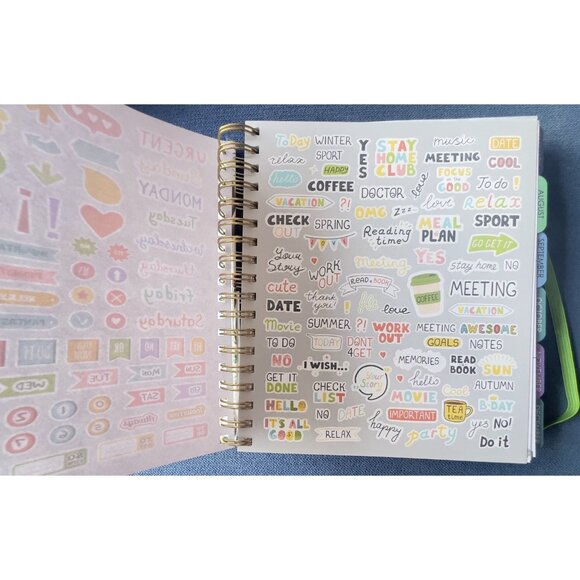 URGENT
MONDAY
Tuesday
Wednesday
Thursday
Friday
Saturday
WED
MON
SUN
SAT
Always
ToDay WINTER YES STAY HOME CLUB music DATE
relax SPORT MEETING COOL
hello HAPPY FOCUS ON the GOOD To do!
COFFEE DOCTOR love love relax
VACATION ?! OMG zzz
CHECK OUT SPRING Reading time? MEAL PLAN SPORT
GO GET IT
Love Story WORK OUT Meeting YES stay home NO
cute READ a BOOK COFFEE MEETING
DATE thank you! life love VACATION
Movie SUMMER ?! WORK OUT MEETING AWESOME
TO DO TODAY DONT 4GET GOALS NOTES
NO I WISH... MEMORIES READ BOOK SUN
GET IT DONE CHECK LIST Your Story hello cool AUTUMN
HELLO NO DATE MOVIE B-DAY
IT'S ALL GOOD IMPORTANT TEA time yes! NO!
RELAX happy party Do it
AUGUST
SEPTEMBER
OCTOBER